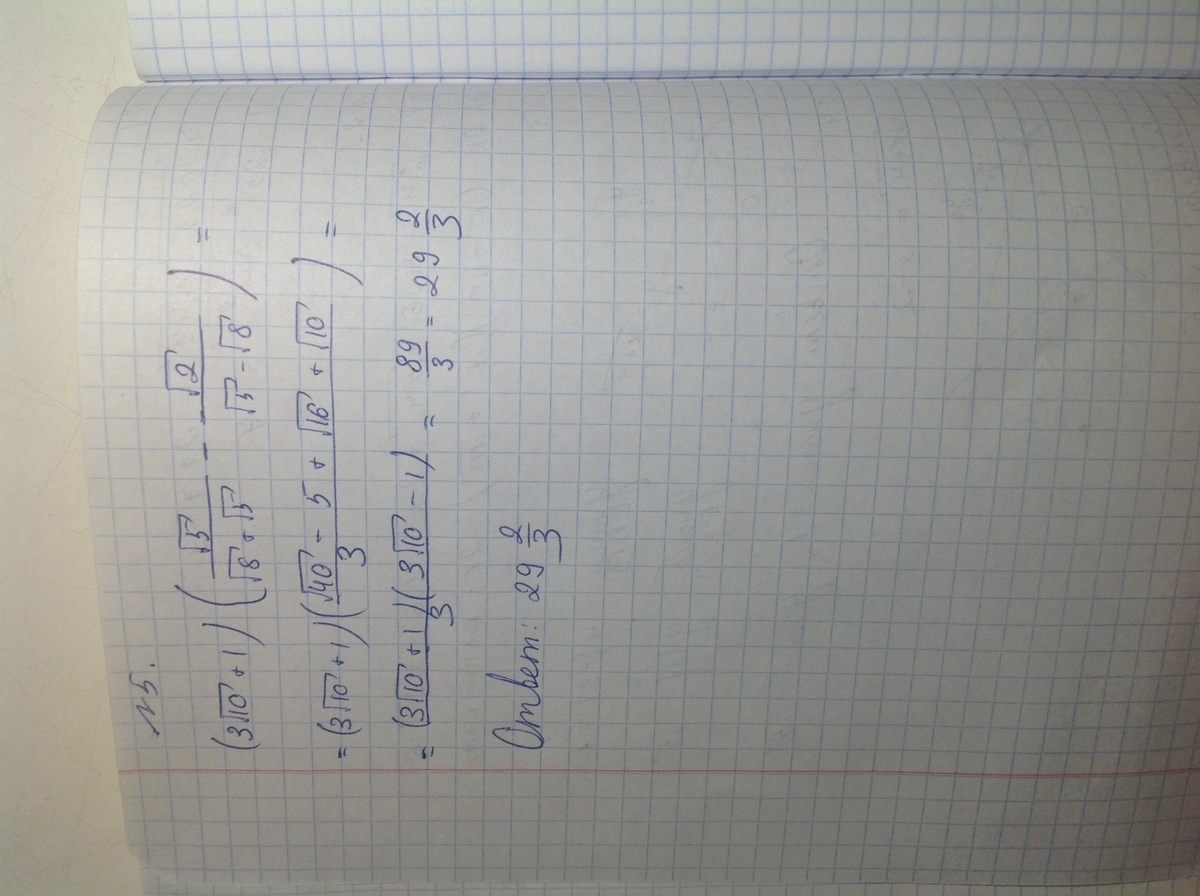 №5.
(3√10 + 1) (√5/(√8 + √5) - √2/(√5 - √8)) =
= (3√10 + 1) ((√40 - 5 + √16 + √10)/3) =
= (3√10 + 1)(3√10 - 1)/3 = 89/3 = 29 2/3
Ответ: 29 2/3